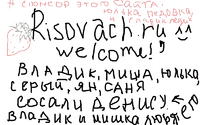 # спонсор этого сайта.
юлька педовка,
и гладиаледи
Risovach.ru
welcome!
ВЛАДИК, МИША, ЮЛЬКА,
СЕРЫЙ, ЯН, САНЯ
СОСАЛИ ДЕНИСУ
ВЛАДИК И МИШКА ЛЮБЯТ